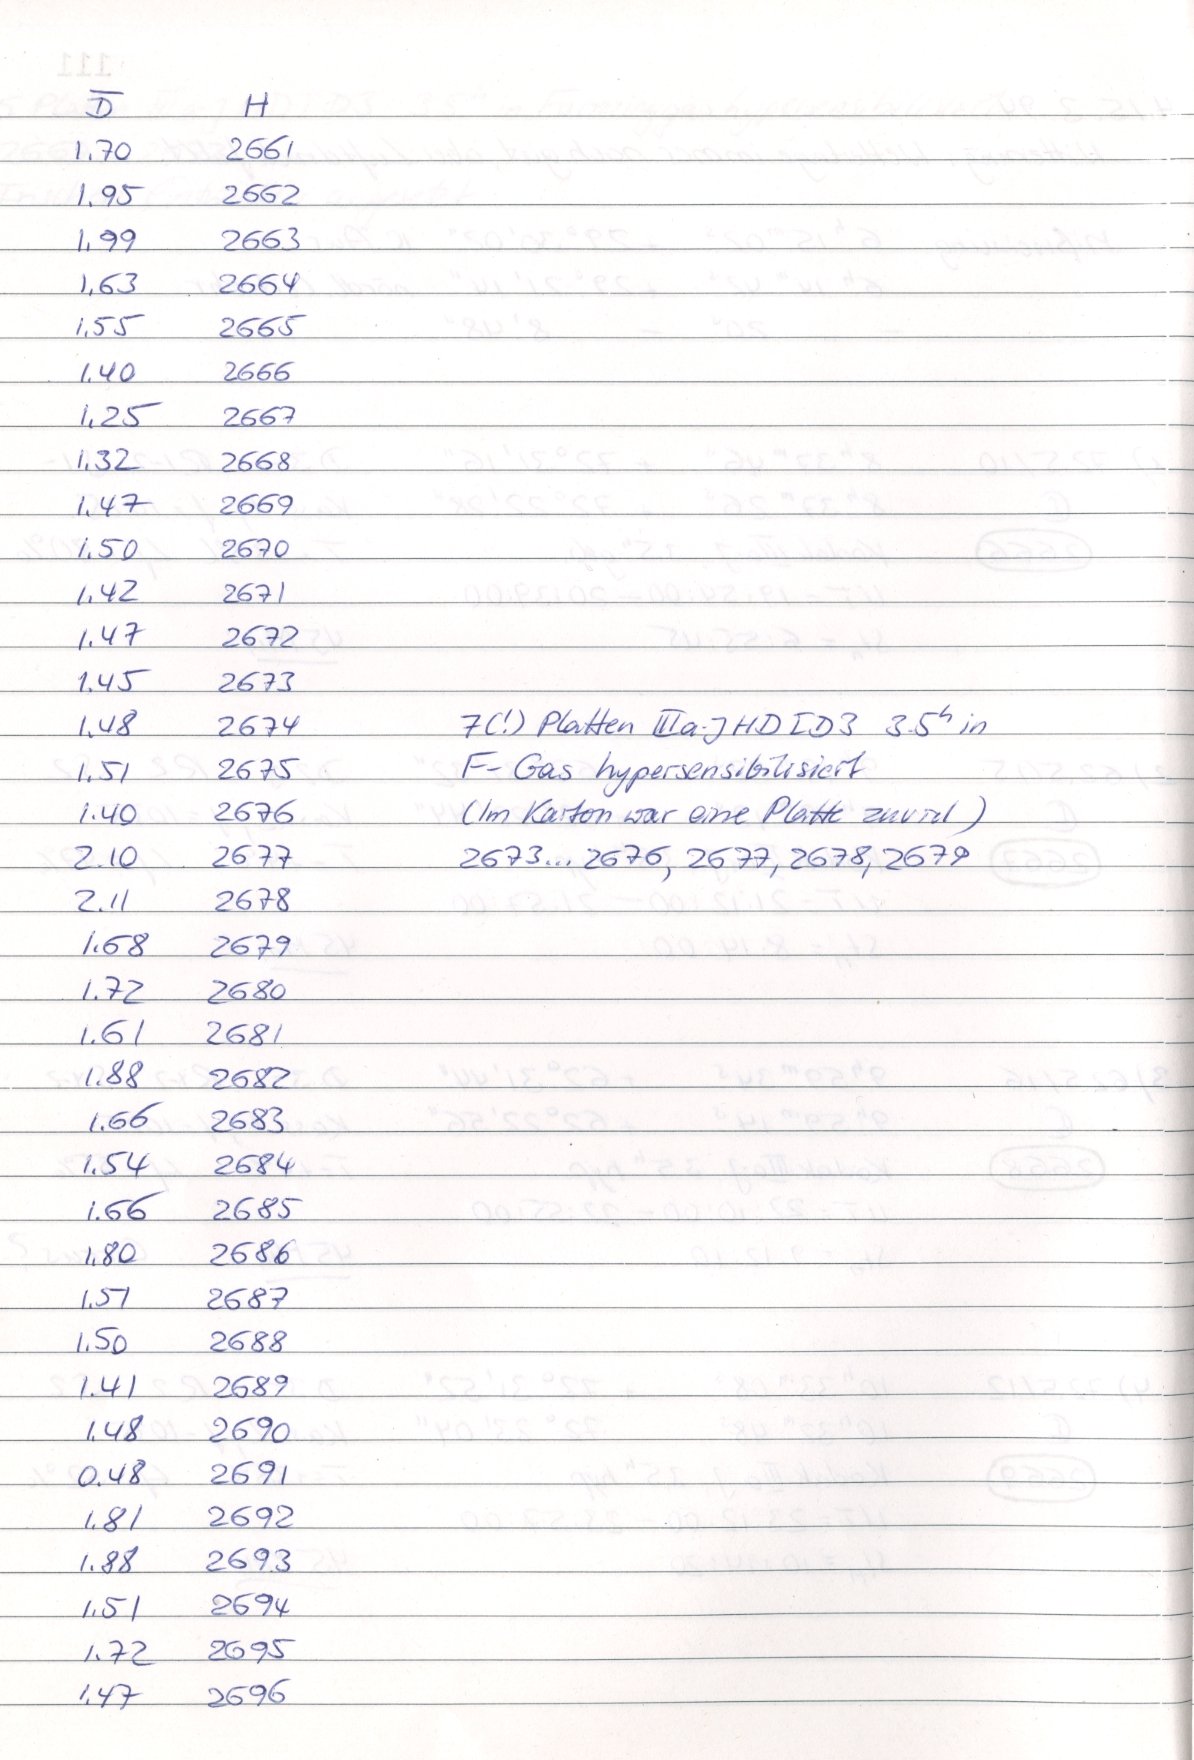 D̅ H
1.70 2661
1.95 2662
1.99 2663
1.63 2664
1.55 2665
1.40 2666
1.25 2667
1.32 2668
1.47 2669
1.50 2670
1.42 2671
1.47 2672
1.45 2673
1.48 2674 7(!) Platten IIIa-J HD ID3 3.5ʰ in
1.51 2675 F-Gas hypersensibilisiert
1.40 2676 (Im Karton war eine Platte zuviel)
2.10 2677 2673... 2676, 2677, 2678, 2679
2.11 2678
1.68 2679
1.72 2680
1.61 2681
1.88 2682
1.66 2683
1.54 2684
1.66 2685
1.80 2686
1.51 2687
1.50 2688
1.41 2689
1.48 2690
0.48 2691
1.81 2692
1.88 2693
1.51 2694
1.72 2695
1.47 2696